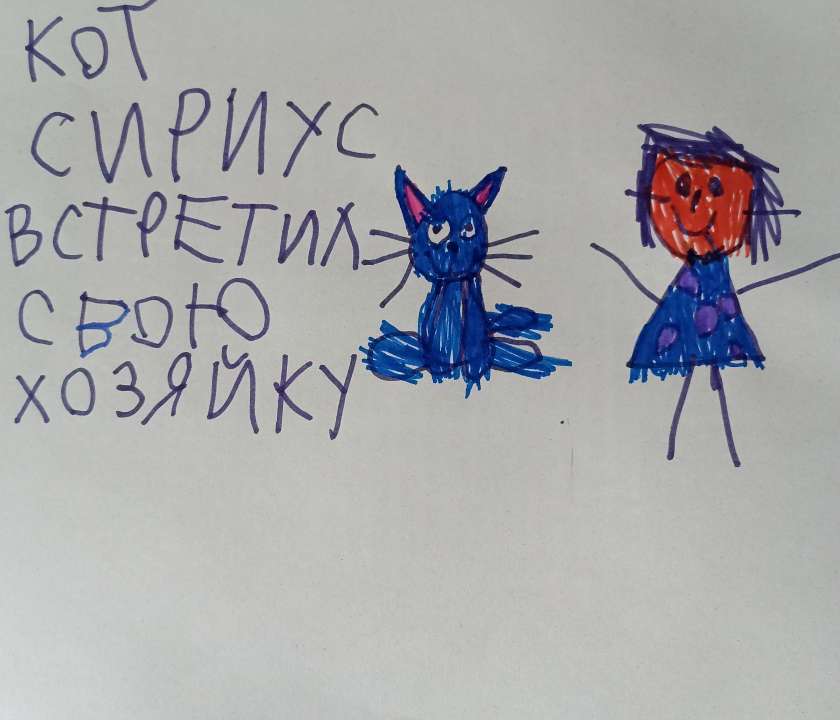 КОТ
СИРИУС
ВСТРЕТИЛ
СВОЮ
ХОЗЯЙКУ